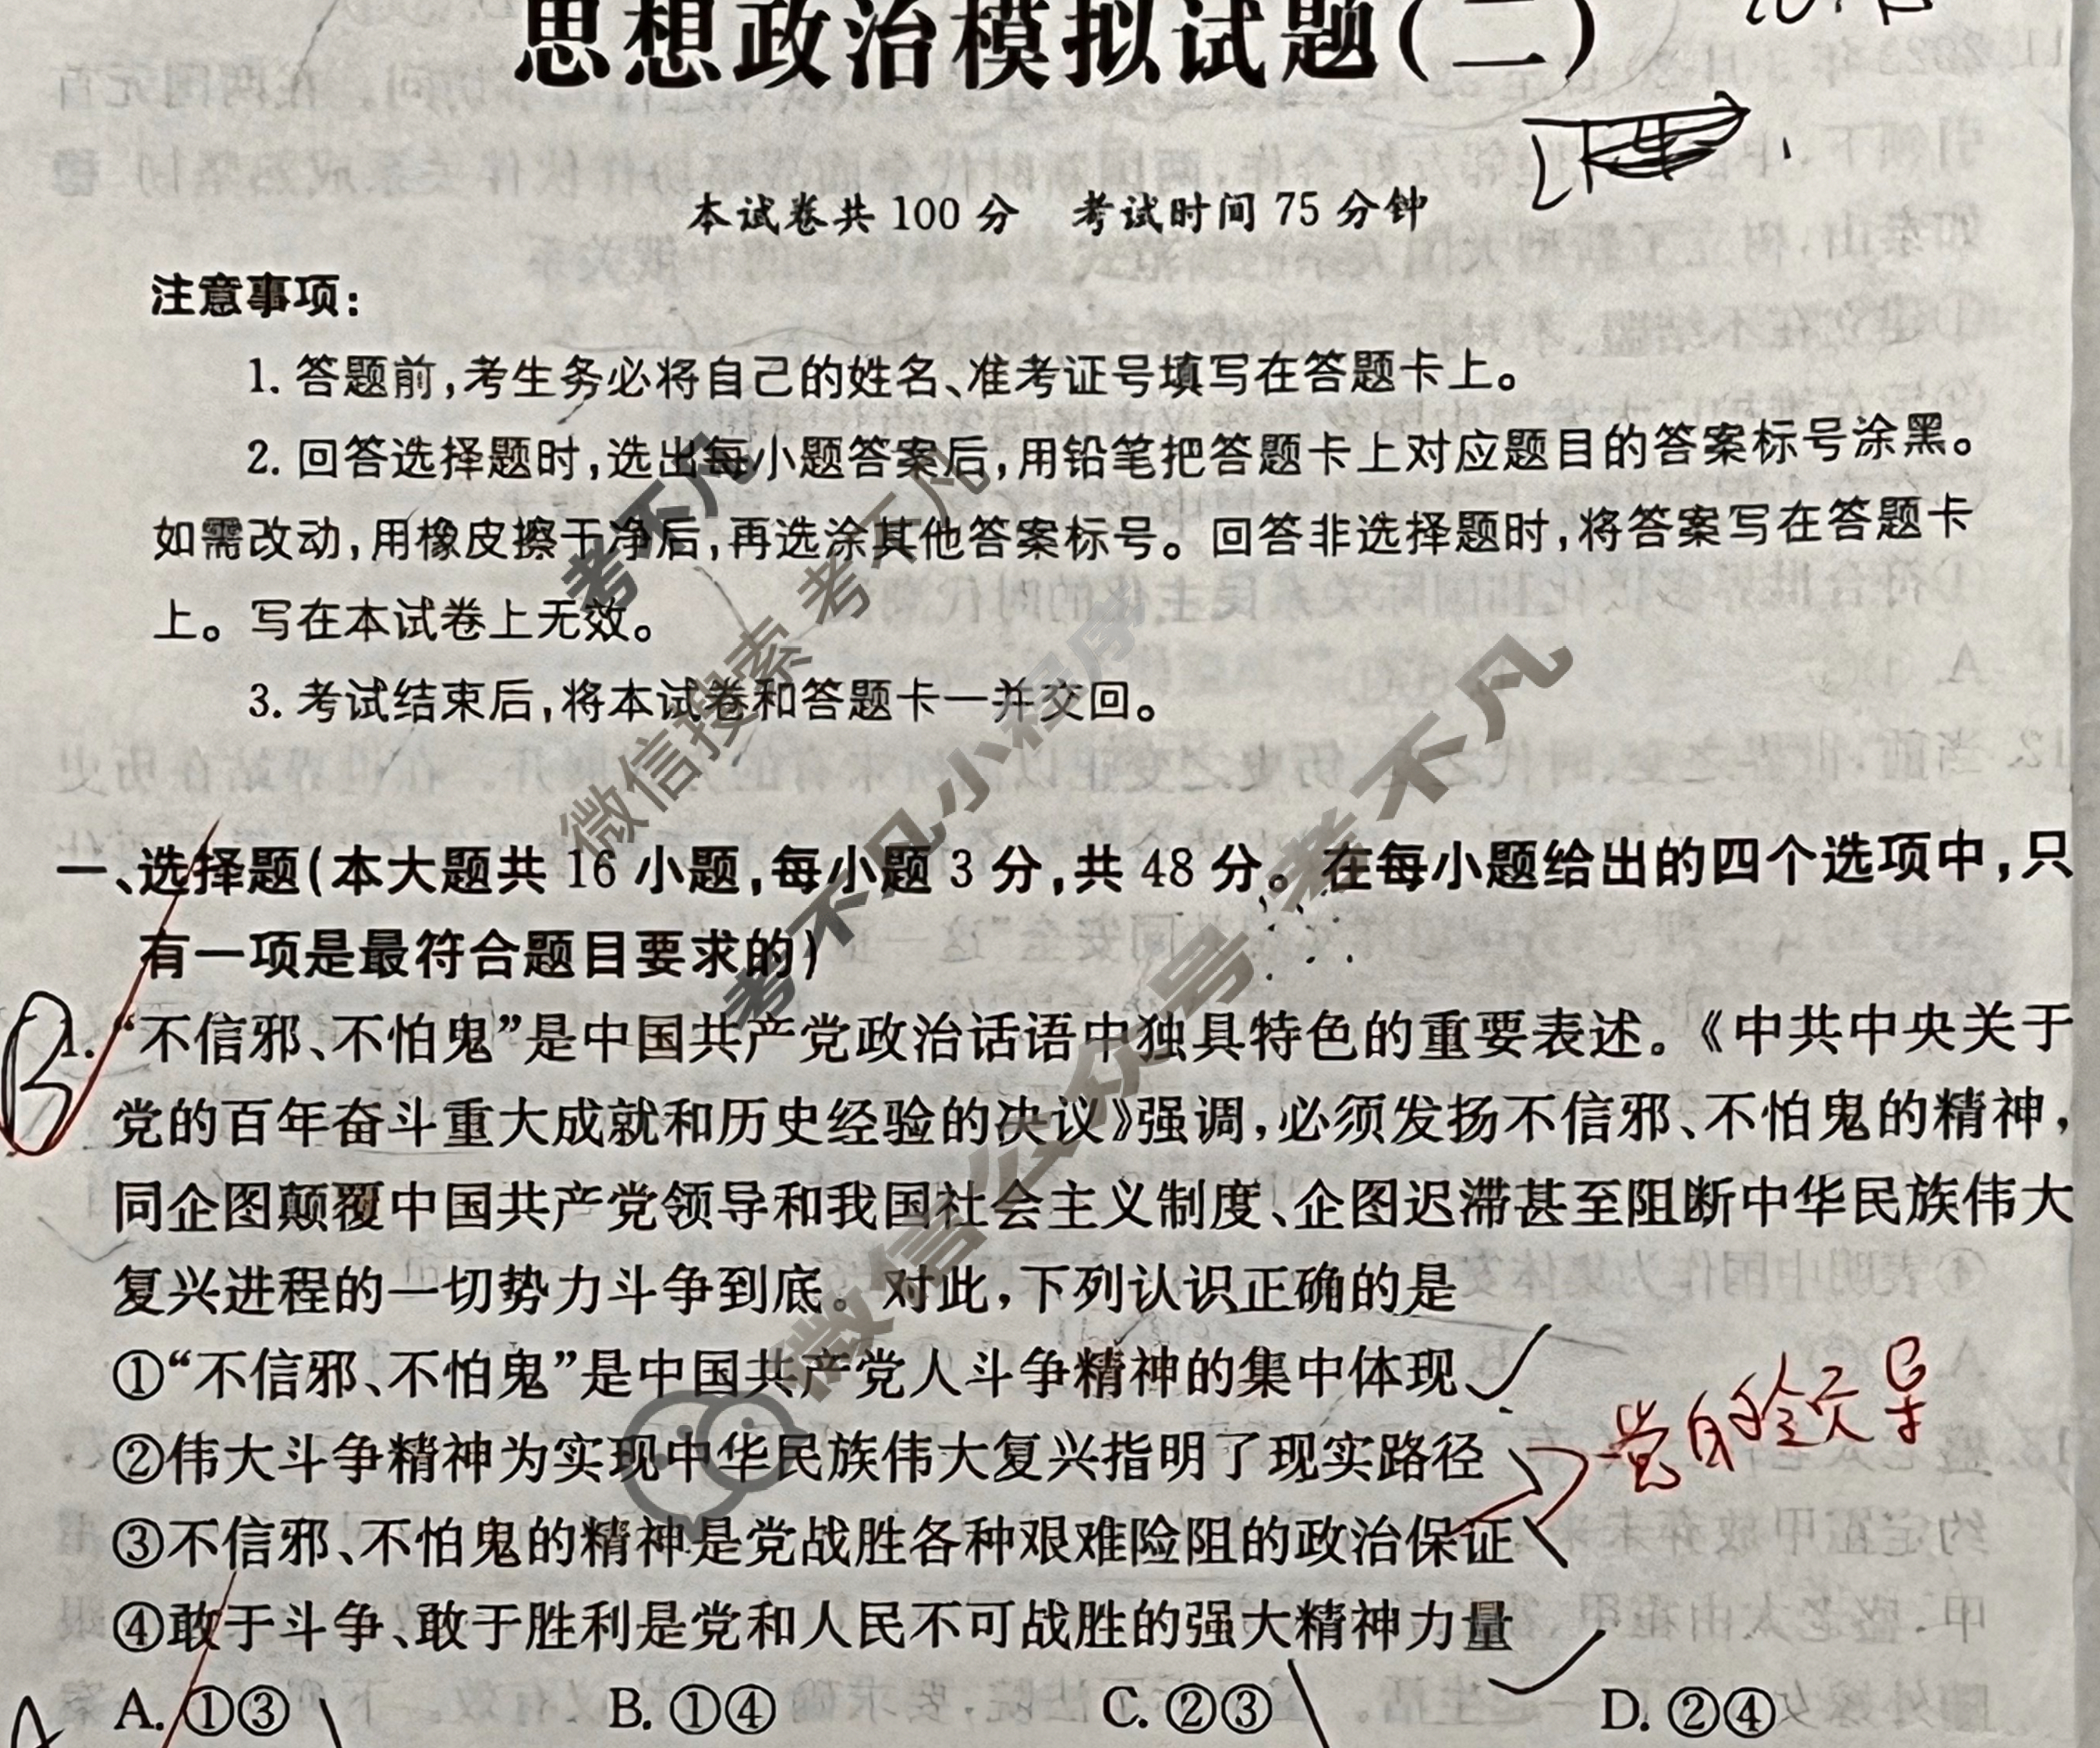 思想政治模拟试题(二)
本试卷共 100 分 考试时间 75 分钟
注意事项:
1. 答题前,考生务必将自己的姓名、准考证号填写在答题卡上。
2. 回答选择题时,选出每小题答案后,用铅笔把答题卡上对应题目的答案标号涂黑。
如需改动,用橡皮擦干净后,再选涂其他答案标号。回答非选择题时,将答案写在答题卡
上。写在本试卷上无效。
3. 考试结束后,将本试卷和答题卡一并交回。
考不凡
微信搜索 考不凡
考不凡小程序
微信公众号 考不凡
一、选择题(本大题共 16 小题,每小题 3 分,共 48 分。在每小题给出的四个选项中,只
有一项是最符合题目要求的)
B
1. “不信邪、不怕鬼”是中国共产党政治话语中独具特色的重要表述。《中共中央关于
党的百年奋斗重大成就和历史经验的决议》强调,必须发扬不信邪、不怕鬼的精神,
同企图颠覆中国共产党领导和我国社会主义制度、企图迟滞甚至阻断中华民族伟大
复兴进程的一切势力斗争到底。对此,下列认识正确的是
①“不信邪、不怕鬼”是中国共产党人斗争精神的集中体现
②伟大斗争精神为实现中华民族伟大复兴指明了现实路径
党的领导
③不信邪、不怕鬼的精神是党战胜各种艰难险阻的政治保证
④敢于斗争、敢于胜利是党和人民不可战胜的强大精神力量
A. ①③ B. ①④ C. ②③ D. ②④